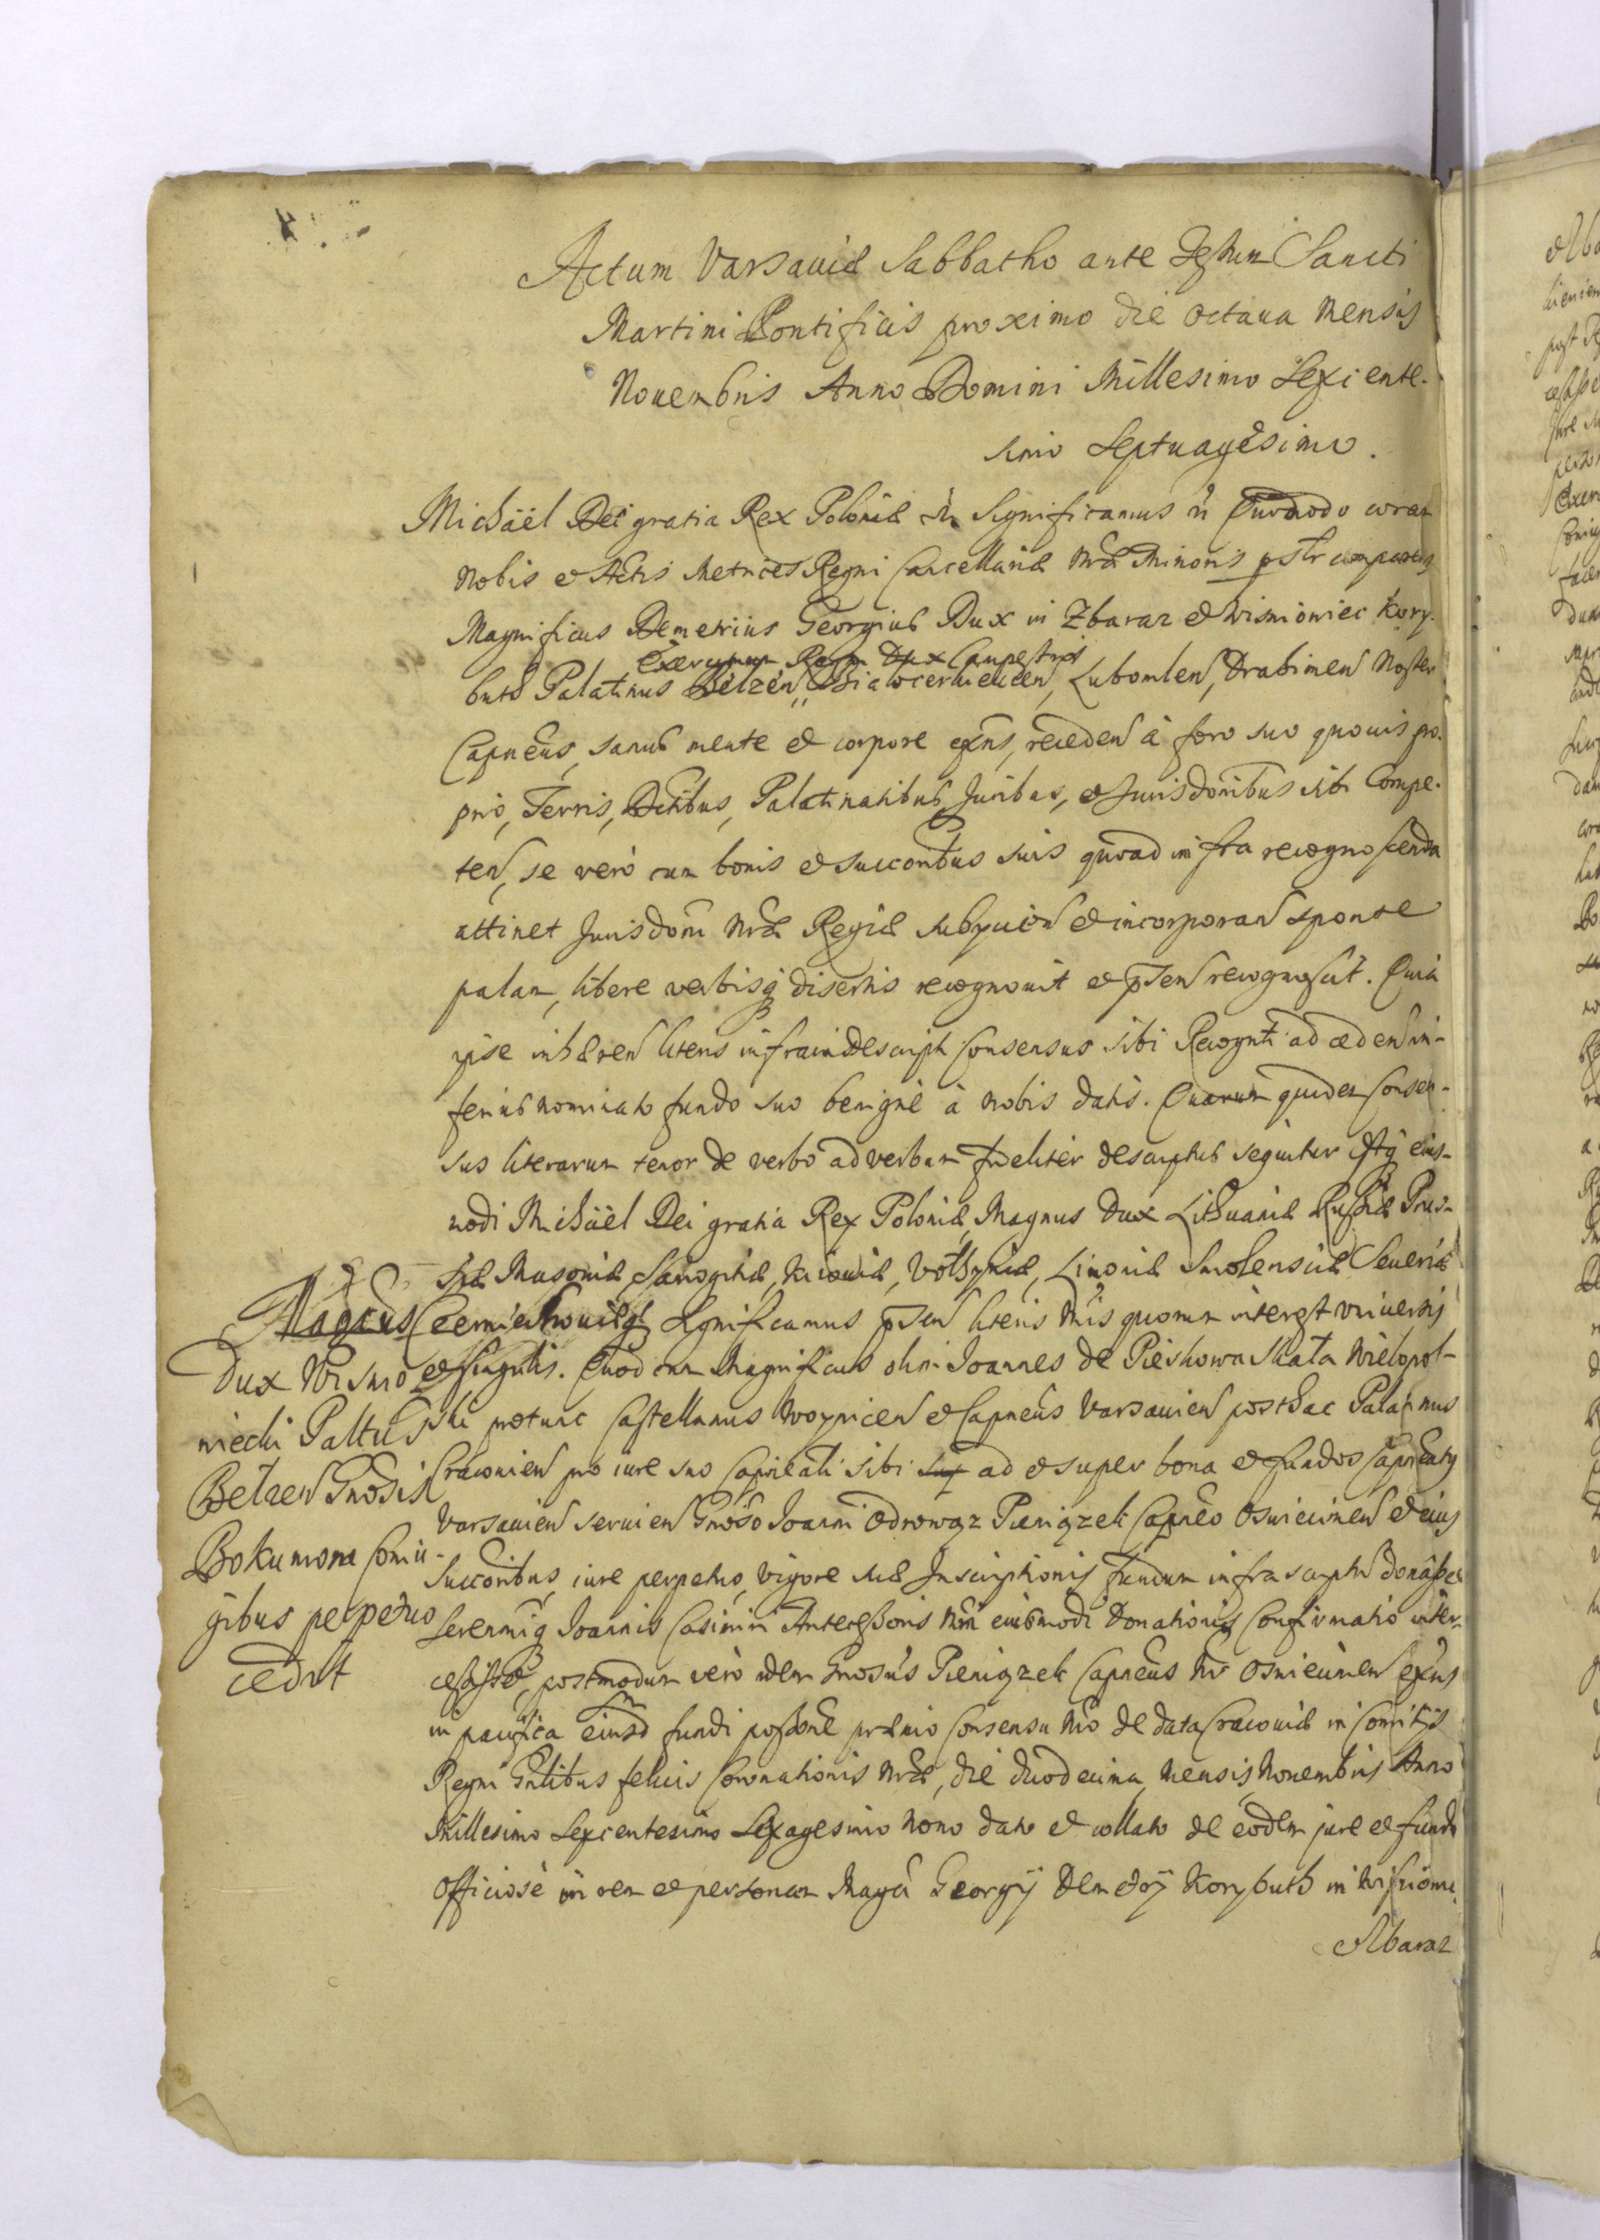 Actum Varsaviæ Sabbatho ante Festum Sancti
Martini Pontificis proximo die octava Mensis
Novembris Anno Domini Millesimo Sexcente-
simo Septuagesimo.
Michäel Dei gratia Rex Poloniæ Significamus Quomodo coram
Nobis et Actis Metrices Regni Cancellariæ Nræ Minoris pstr comparens
Magnificus Demetrius Georgius Dux in Zbaraz et Wisniowiec Kory-
Exercituum Regni Dux Campestris
buth Palatinus Belzen, Bialocerkieucen, Lubomlen, Drahimen Noster
Capneus, sanus mente et corpore exns, receden à foro suo quovis pro-
prio, Terris, Dctibus, Palatinatibus, Juribus, et Jurisdonibus sibi Compe-
ten, se verò cum bonis et succoribus suis quoad infra recognoscenda
attinet Jurisdoni Nræ Regiæ subyicien et incorporan sponte
palam, libere verbisq disertis recognovit et pnsen recognoscit. Quia
ipse inhæren literis infraindescript Consensus sibi Recognti ad æden in-
ferius nominato fundo suo benignè à Nobis datis. Quarum quidem Consen-
sus literarum tenor de verbo ad verbum fideliter descriptus sequitur Estq eius-
modi Michäel Dei gratia Rex Poloniæ, Magnus Dux Lithuaniæ Russiæ Prus-
siæ Masoviæ Samogitiæ, Kijoviæ, Volhyniæ, Livoniæ Smolensciæ Severiæ
Czernichoviæq Significamus pnsen literis Nris quorum interest universis
et singulis. Quod cum Magnificus olim Joannes de Pieskowa Skała Wielopol-
ski protunc Castellanus Woynicen et Capneus Varsavien posthac Palatinus
Cracovien pro iure suo Capneali sibi sup ad et super bona et fundos Capneatus
Varsavien servien Gnoso Joanni Odrowąz Pieniązek Capneo Osviecimen et eius
Succoribus, iure perpetuo, vigore suæ Inscriptionis fundum infrascriptum donasset
Serenmiq Joannis Casimiri Antecessoris Nri eiusmodi Donationis Confirmatio inter-
cessisset, postmodum verò idem Gnosus Pieniązek Capneus Nr Osviecimen exns
in pacifica eiusd fundi possone prævio Consensu Nro de data Cracoviæ in Comitijs
Regni Gnlibus felicis Coronationis Nræ, die duodecima, Mensis Novembris Anno
Millesimo Sexcentesimo Sexagesimo Nono dato et collato de eodem jure et fundo
officiosè in rem et personam Magci Georgij Demetrij Korybuth in Wisniowi-
et Zbaraz
Magcus
Dux Wisnio-
wiecki Paltus
Belzen Gnosis
Bokumom Coniu-
gibus perpetuo
cedit